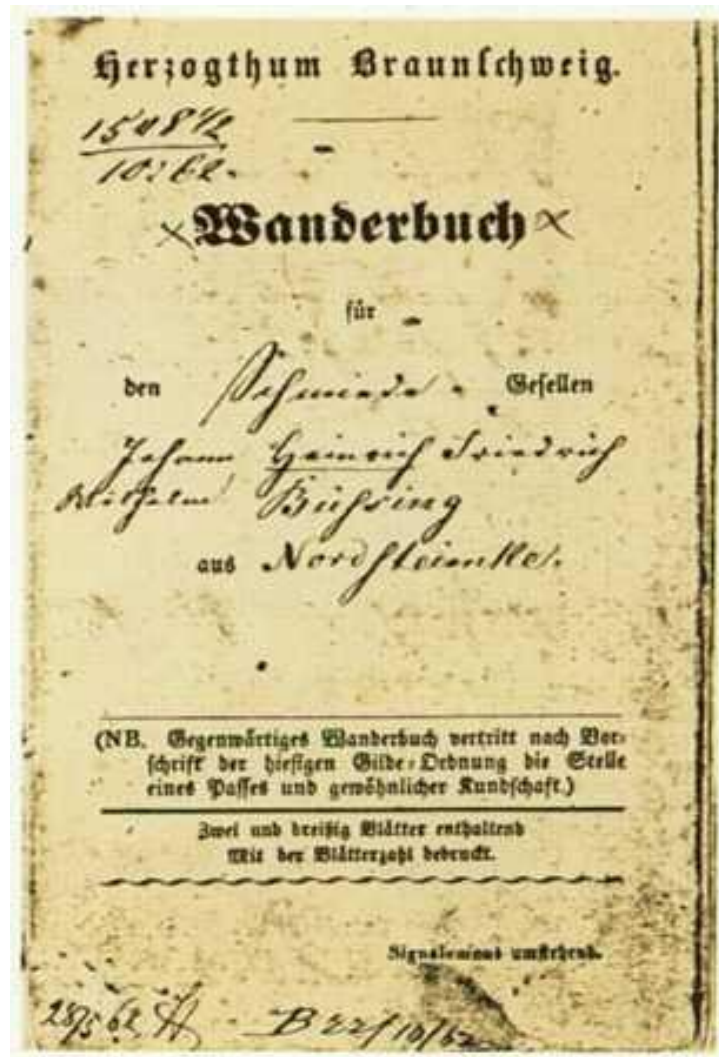 Herzogthum Braunschweig.
1548 1/2
10262.
Wanderbuch
für
den Schmiede- Gesellen
Johann Heinrich Friedrich
Wilhelm Büssing
aus Nordsteimke.
(NB. Gegenwärtiges Wanderbuch vertritt nach Vor-
schrift der hiesigen Gilde-Ordnung die Stelle
eines Passes und gewöhnlicher Kundschaft.)
Zwei und dreißig Blätter enthaltend
Mit der Blätterzahl bedruckt.
Signalement umstehend.
B 22/10/62